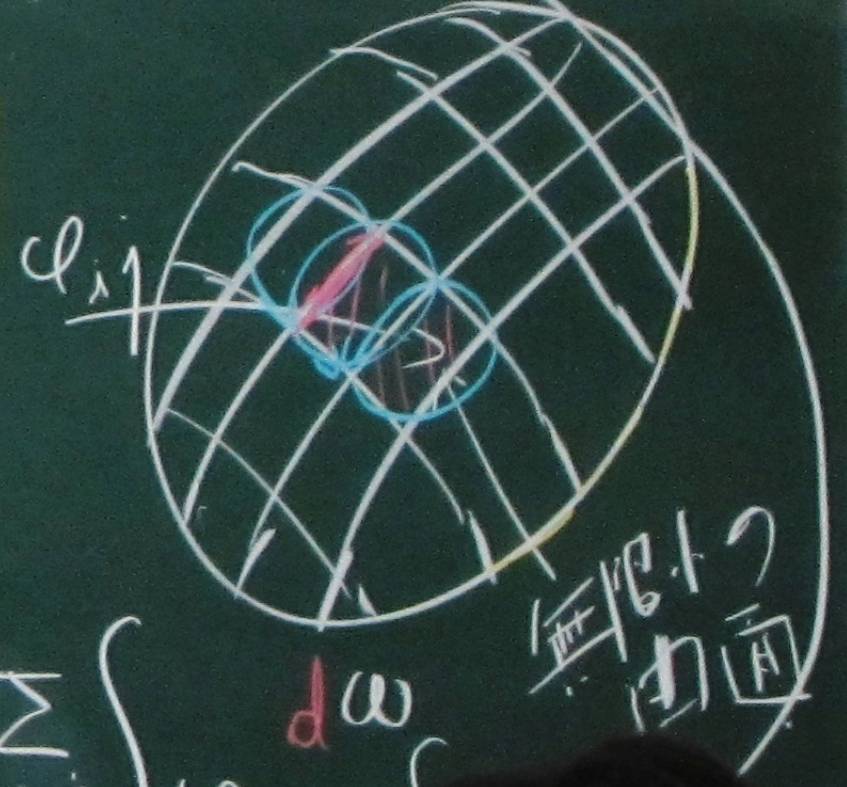 φij
無限小の
曲面
Σ∫dω